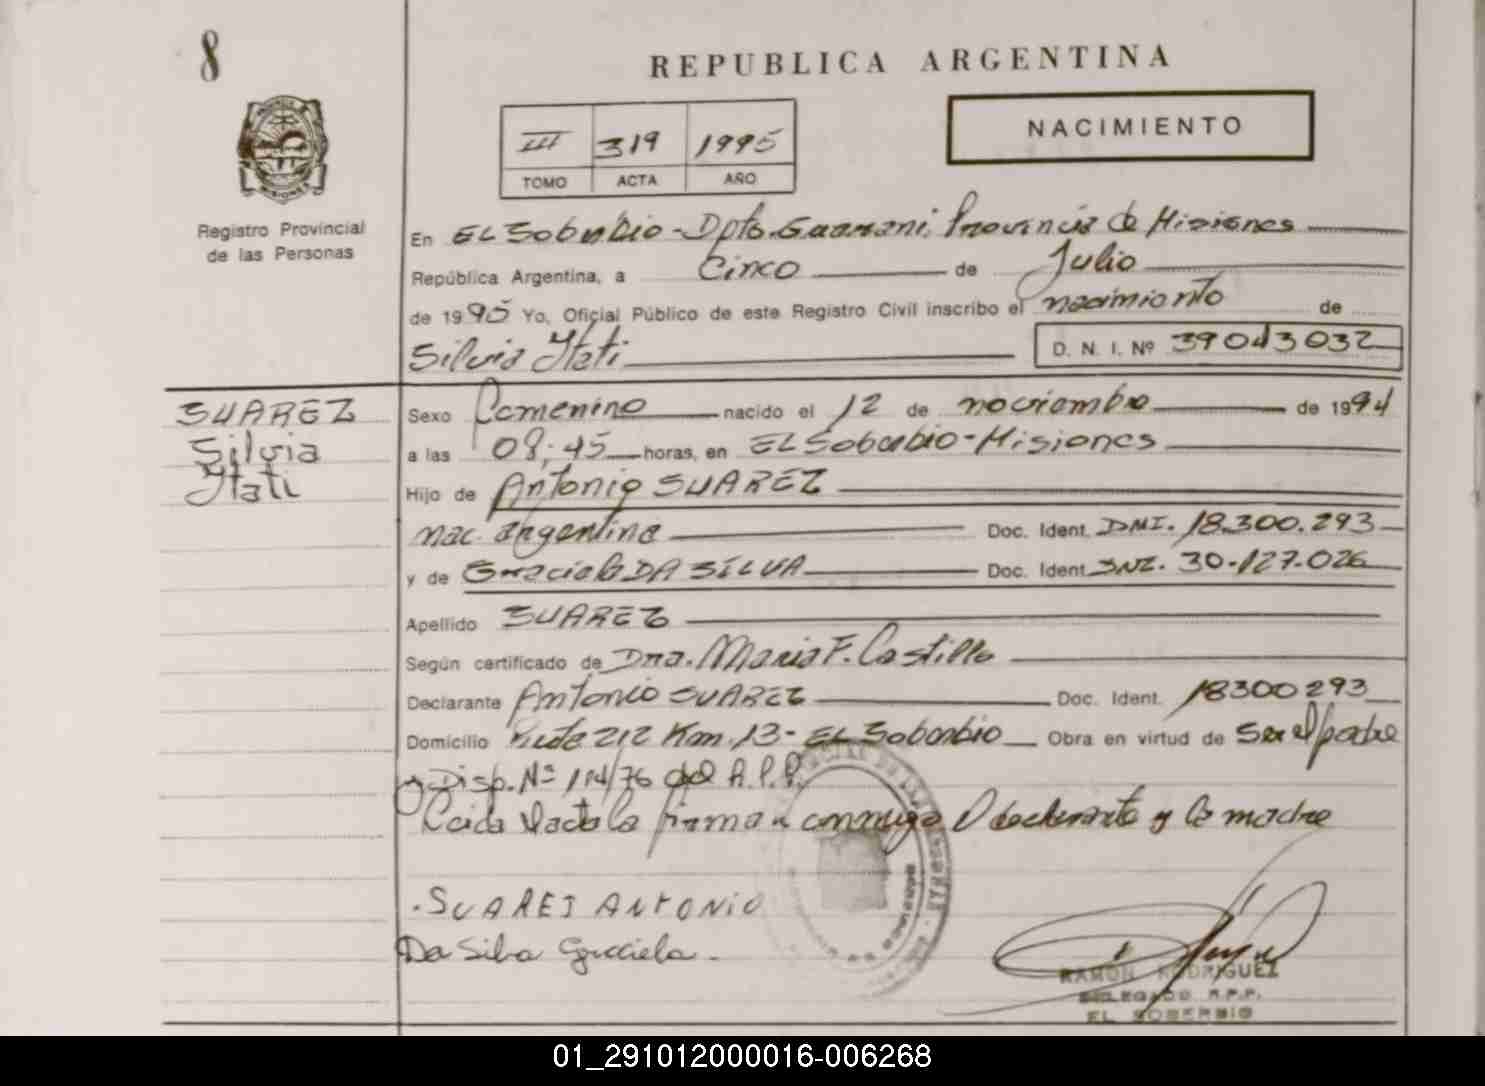 8
REPUBLICA ARGENTINA
NACIMIENTO
III 319 1995
TOMO ACTA AÑO
Registro Provincial
de las Personas
En EL Soberbio - Dpto. Guarani, Provincia de Misiones
República Argentina, a Cinco de Julio
de 1995 Yo, Oficial Público de este Registro Civil inscribo el nacimiento de
Silvia Itati
D. N. I. Nº 39043032
SUAREZ
Silvia
Itati
Sexo Femenino nacido el 12 de noviembre de 1994
a las 08:45 horas, en EL Soberbio - Misiones
Hijo de Antonio SUAREZ
nac. argentina Doc. Ident. DMI. 18.300.293
y de Graciela DA SILVA Doc. Ident. 30.127.026
Apellido SUAREZ
Según certificado de Dra. Maria F. Castillo
Declarante Antonio SUAREZ Doc. Ident. 18300293
Domicilio Ruta 212 Km. 13 - EL Soberbio Obra en virtud de Ser el padre
Disp. Nº 114/76 del R.P.P.
Leida el acta la firman conmigo el declarante y la madre
SUARES ANTONIO
Da Silva Graciela.
RAMON RODRIGUEZ
DELEGADO R.P.P.
EL SOBERBIO
01_291012000016-006268